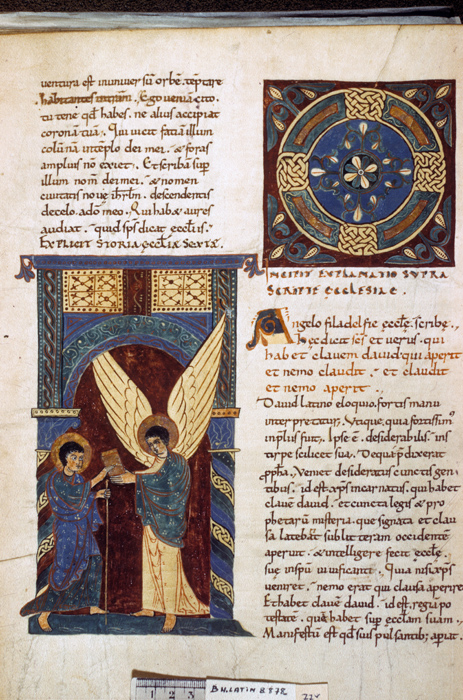 ventura est inuniuersū orbē. teptare
habitantes intrram. Ego venia cito
tu tene qd habes. ne alius accipiat
coronā tuā. Qui uicit faciā illum
colūna intēplo dei mei. & foras
amplius non exiet. Et scribā sup
illum nom dei mei. & nomen
ciuitatis noue ihrlm. descendentis
decelo. adō meo. Qui hab& aures
audiat. quid sps dicit ecclīs.
EXPLICIT STORIA ECCLIA SEXTA.
INCIPIT EXPLANATIO SVPRA
SCRIPTE ECCLESIAE.
Angelo filadelfie ecclē. scribe.
hec dicit scs et verus. qui
habet clavem david. qui aperit
et nemo claudit. et claudit
et nemo aperit.
David latino eloquio. fortis manu
interpretatur. Utique. quia fortissim'
inplius fuit. Ipse ē desiderabilis. ins
tirpe scilicet sua. De qua pdixerat
ppha. Veniet desideratus cunctis gen
tibus. id est xps incarnatus. qui habet
clauē david. et cuncta legis & pro
phetarū misteria. que signata et clau
sa latebāt sub litteram occidente
aperuit. & intelligere fecit ecclē
suę inspu uiuificanti. Quia nisi xps
veniret. nemo erat qui clausa aperire
Et habet clavē david. id est. regia po
testate. quā habet sup ecclam suam.
Manifestū est qd suis pulsantib; apriat.
1 2 3
BN. LATIN 8878
22v